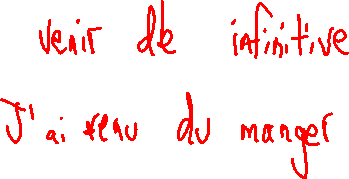 venir de infinitive
J'ai venu du manger